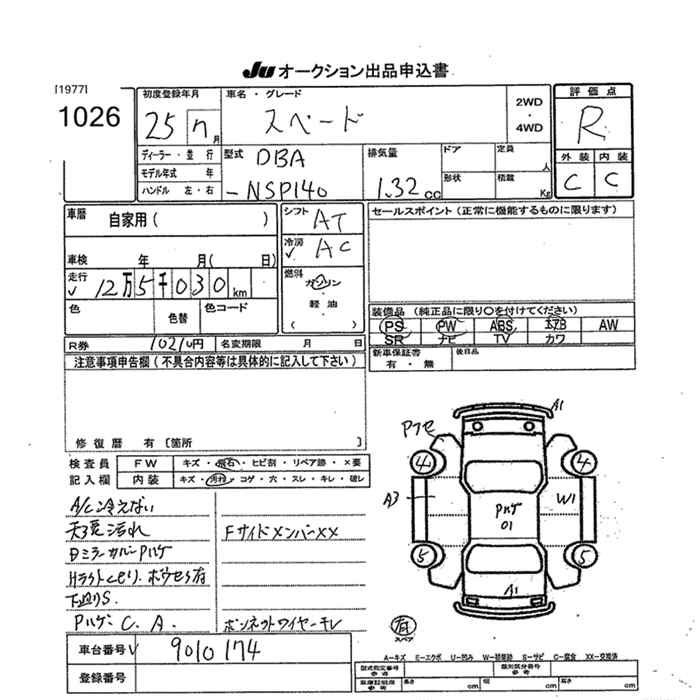 JU オークション出品申込書
[1977]
1026
初度登録年月
25 n 月
車名・グレード
スペード
2WD
・
4WD
評価点
R
外装 内装
C C
ディーラー・並行
モデル年式 年
ハンドル 左・右
型式 DBA
-NSP140
排気量
1.32 cc
ドア
定員
人
形状
積載
Kg
車暦
自家用( )
車検 年 月( 日)
走行
12万5千030km
色
色替
色コード
シフト AT
冷房 AC
燃料
ガソリン
・
軽油
( )
セールスポイント(正常に機能するものに限ります)
装備品(純正品に限り○を付けてください)
PS PW ABS エアB AW
SR ナビ TV カワ
R券 10210円 名変期限 月 日
新車保証書
有・無
後日品
注意事項申告欄(不具合内容等は具体的に記入して下さい)
修復暦 有〔箇所 〕
検査員
記入欄
FW キズ・飛石・ヒビ割・リペア跡・×要
内装 キズ・汚れ・コゲ・穴・スレ・キレ・破レ
A/C冷えない
天張汚れ
FサイドメンバーXX
Bミラーカバーハゲ
下廻りS.
Pハゲ C. A.
ボンネットワイヤーキレ
車台番号 9010174
登録番号
A1
Pフセ
4 4
A3
W1
Pハゲ
01
5 5
A1
有
スペア
A-キズ E-エクボ U-凹み W-補修跡 S-サビ C-腐食 XX-交換済
型式指定番号
参考
類別区分番号
参考
長さ cm
幅 cm
高さ cm